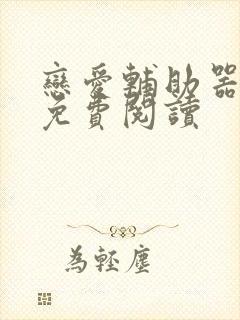 戀愛輔助器
免費閱讀
為輕塵